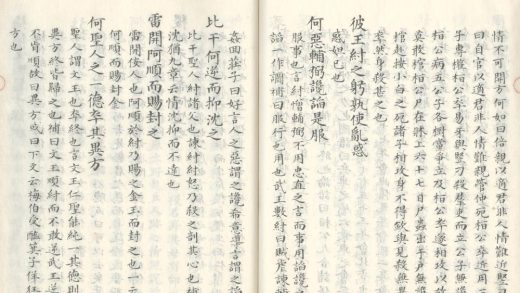 情不可開方何如曰倍親以適君非人情難近豎刁
曰自宮以適君非人情難親管仲死桓公幸近用三
子專權桓公卒易牙與豎刁殺羣吏而立公子無
桓公病五公子各樹黨爭立及桓公卒遂相攻以故
莫敢棺桓公尸在牀上六十七日尸蟲出于戶無
棺赴接小白之死諸子相攻身不得斂與見殺無
卒然身殺甚之也
彼王紂之躬孰使亂惑
惑妲己也
何惡輔弼讒諂是服
服事也言紂憎輔弼不用忠直之言而事用諂讒之
諂一作讇補曰服行也用也武王數紂曰賊虐諫輔
姦回莊子曰好言人之惡謂之讒希意導言謂之諂
比干何逆而抑沈之
比干聖人紂諸父也諫紂紂怒乃殺之剖其心也補
沈猶九章云情沈抑而不達也
雷開阿順而賜封之
雷開佞人也阿順於紂乃賜之金玉而封之也一云
何順而賜封金
何聖人之一德卒其異方
聖人謂文王也卒終也言文王仁聖能純一其德則
異方終皆歸之也補曰文王順紂而不敢逆武王逆
不肯順故曰異方或曰下文云梅伯受醢箕子佯狂
方也